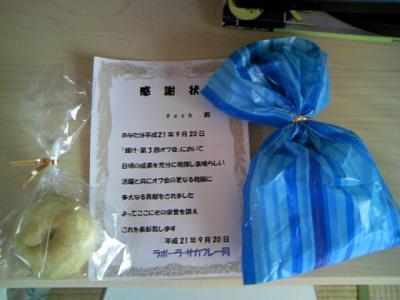 感謝状
foch 殿
あなたは平成21年9月20日
「輝汁・第3回オフ会」において
日頃の成果を充分に発揮し素晴らしい
活躍と共にオフ会の更なる発展に
多大なる貢献をされました
よってここにその栄誉を讃え
これを表彰致します
平成21年9月20日
ラポーラ・サカフレ一同